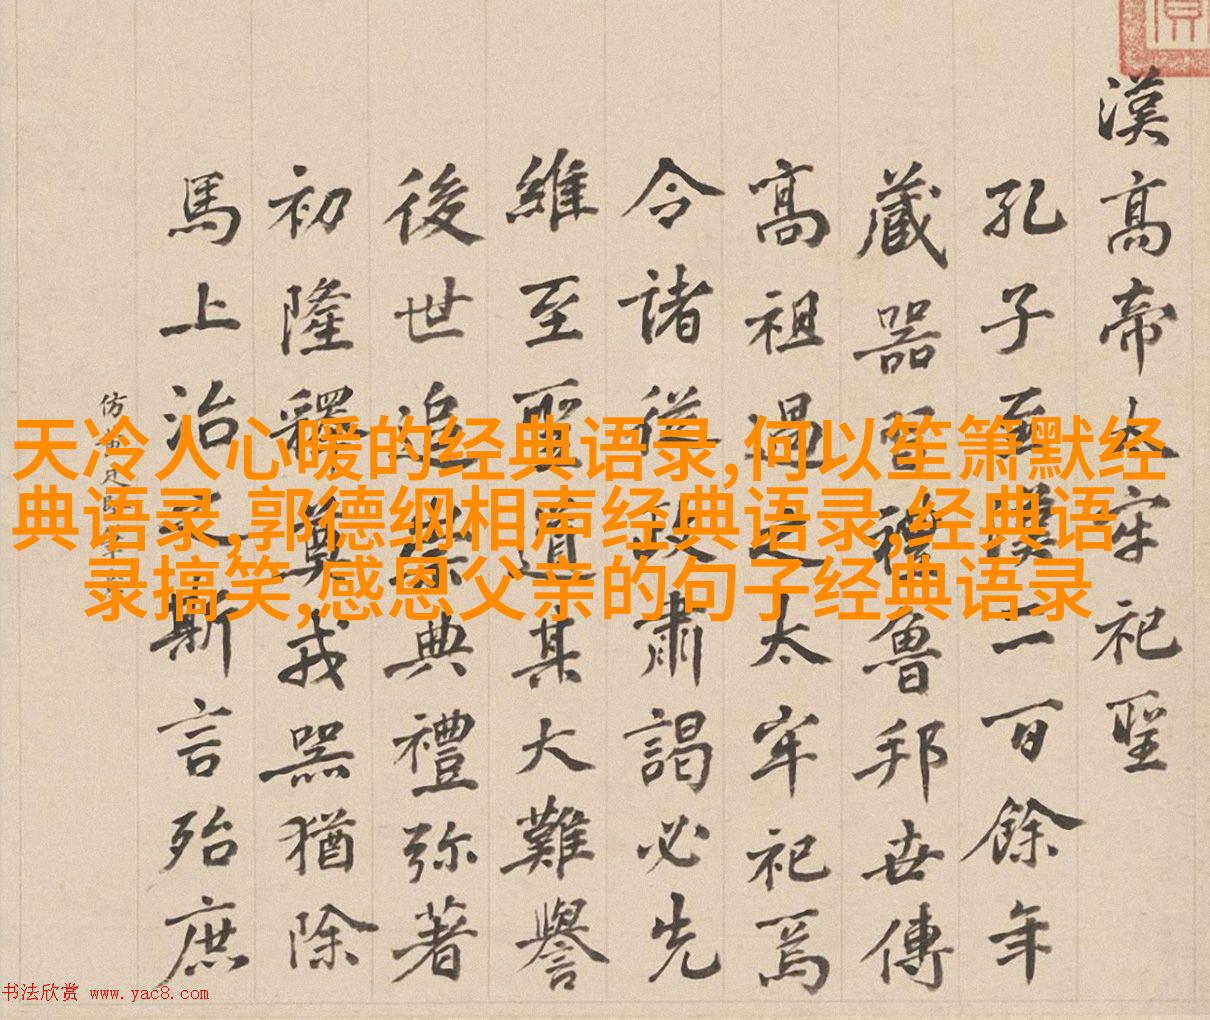 漢高帝太牢祀聖
孔子至漢二百餘年
藏器習禮魯邦世傳
高祖過之太牢祀焉
令諸從政肅謁必先
維至聖道其大難譽
後世追崇典禮弥著
初隆釋奠戎器猶除
馬上治之斯言殆庶
仿
天冷人心暖的经典语录,何以笙箫默经
典语录,郭德纲相声经典语录,经典语
录搞笑,感恩父亲的句子经典语录
书法欣赏 www.yac8.com